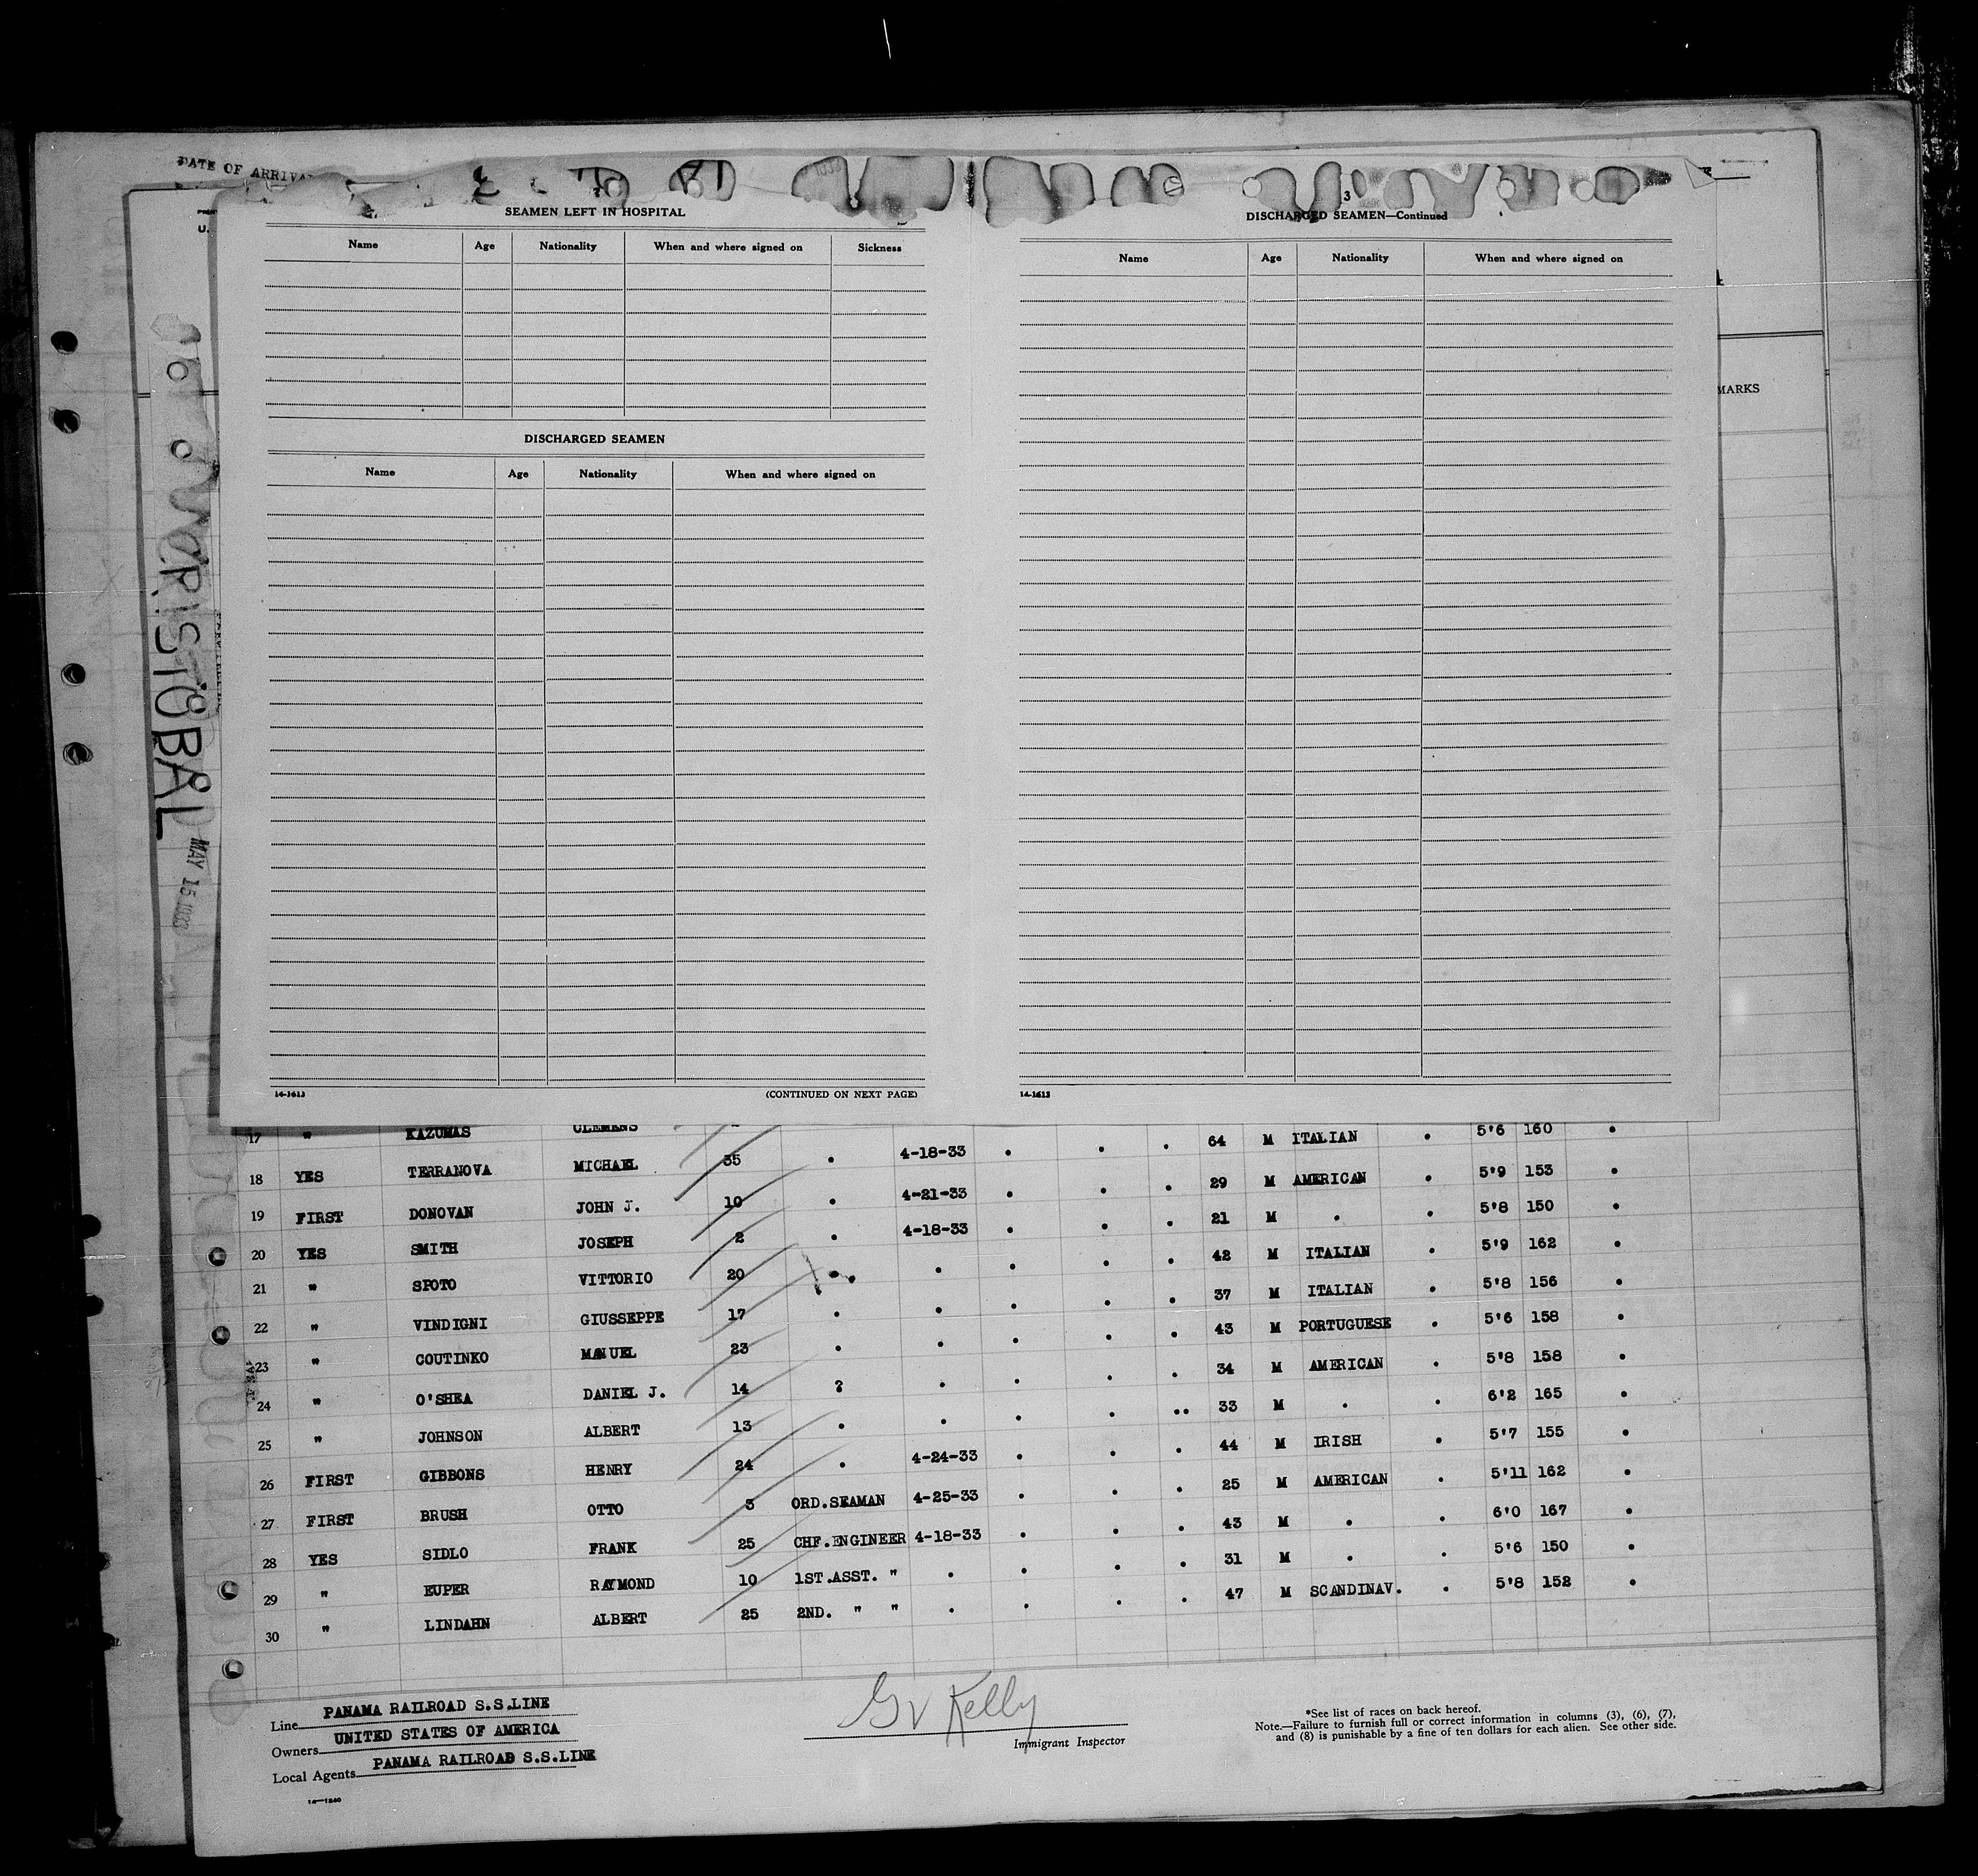 DATE OF ARRIVAL
U.
3
SEAMEN LEFT IN HOSPITAL
Name Age Nationality When and where signed on Sickness
DISCHARGED SEAMEN
Name Age Nationality When and where signed on
14-1613 (CONTINUED ON NEXT PAGE)
DISCHARGED SEAMEN—Continued
Name Age Nationality When and where signed on
14-1613
MARKS
CRISTOBAL
MAY 15 1933
17 " KAZUMAS CLEMENS
18 YES TERRANOVA MICHAEL 35 . 4-18-33 . . . 64 M ITALIAN . 5'6 160 .
19 FIRST DONOVAN JOHN J. 10 . 4-21-33 . . . 29 M AMERICAN . 5'9 153 .
20 YES SMITH JOSEPH 2 . 4-18-33 . . . 21 M . . 5'8 150 .
21 " SPOTO VITTORIO 20 . . . . . 42 M ITALIAN . 5'9 162 .
22 " VINDIGNI GIUSSEPPE 17 . . . . . 37 M ITALIAN . 5'8 156 .
23 " COUTINKO MANUEL 23 . . . . . 43 M PORTUGUESE . 5'6 158 .
24 " O'SHEA DANIEL J. 14 ? . . . . 34 M AMERICAN . 5'8 158 .
25 " JOHNSON ALBERT 13 . . . . .. 33 M . . 6'2 165 .
26 FIRST GIBBONS HENRY 24 . 4-24-33 . . . 44 M IRISH . 5'7 155 .
27 FIRST BRUSH OTTO 3 ORD.SEAMAN 4-25-33 . . . 25 M AMERICAN . 5'11 162 .
28 YES SIDLO FRANK 25 CHF.ENGINEER 4-18-33 . . . 43 M . . 6'0 167 .
29 " EUPER RAYMOND 10 1ST.ASST. " . . . . 31 M . . 5'6 150 .
30 " LINDAHN ALBERT 25 2ND. " " . . . . 47 M SCANDINAV. . 5'8 152 .
Line PANAMA RAILROAD S.S.LINE
Owners UNITED STATES OF AMERICA
Local Agents PANAMA RAILROAD S.S.LINE
14—1240
GV Kelly
Immigrant Inspector
*See list of races on back hereof.
Note.—Failure to furnish full or correct information in columns (3), (6), (7),
and (8) is punishable by a fine of ten dollars for each alien. See other side.